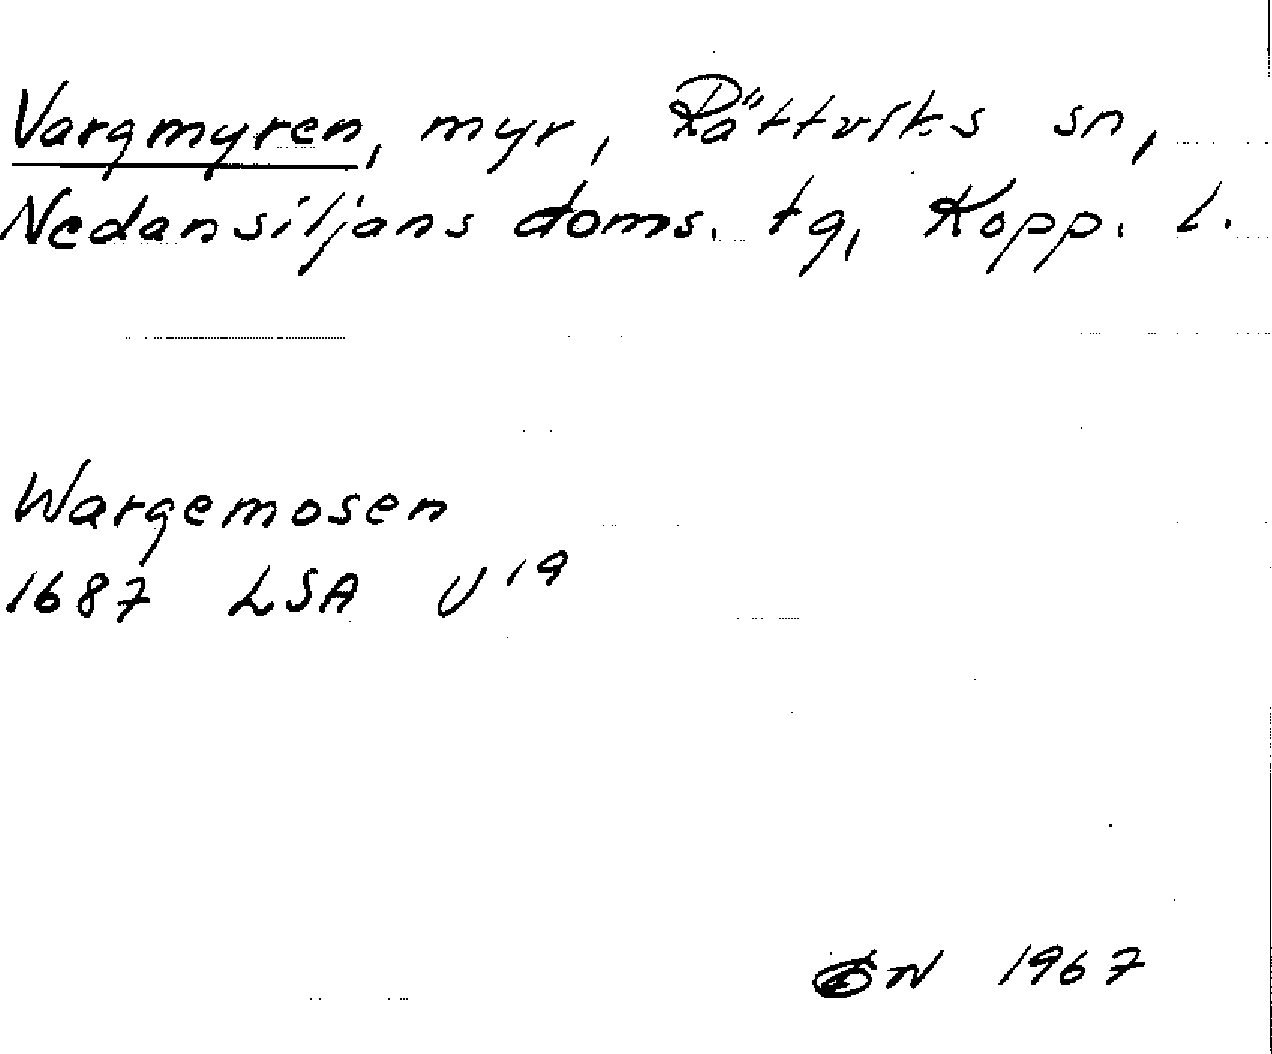 Vargmyren, myr, Rättviks sn,
Nedansiljans doms. tg, Kopp. l.
Wargemosen
1687 LSA U 19
1967